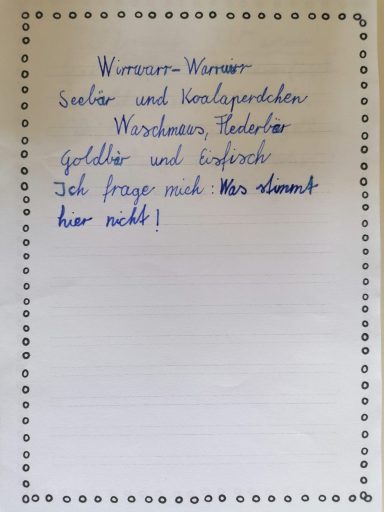 Wirrwarr-Warrwirr
Seebär und Koalaperdchen
Waschmaus, Flederbär
Goldbär und Eisfisch
Ich frage mich: Was stimmt
hier nicht!